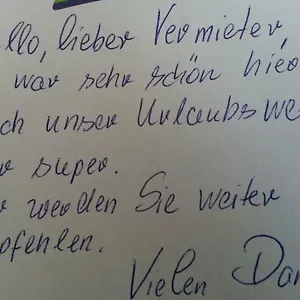 llo, lieber Vermieter,
war sehr schön hier
ch unser Urlaubswe
r super.
r werden Sie weiter
pfehlen.
Vielen Dan